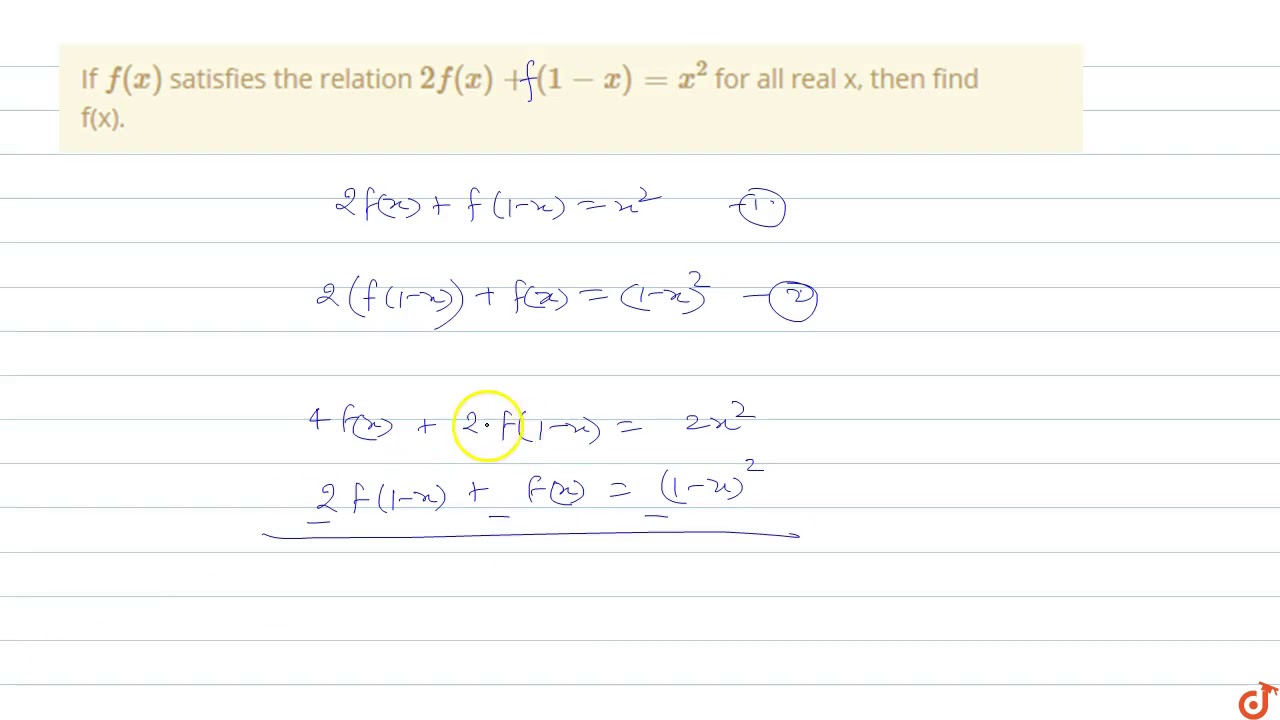 If f(x) satisfies the relation 2f(x) +f(1 − x) = x² for all real x, then find
f(x).
2f(x) + f(1-x) = x² -①
2(f(1-x)) + f(x) = (1-x)² -②
4f(x) + 2·f(1-x) = 2x²
2f(1-x) + f(x) = (1-x)²